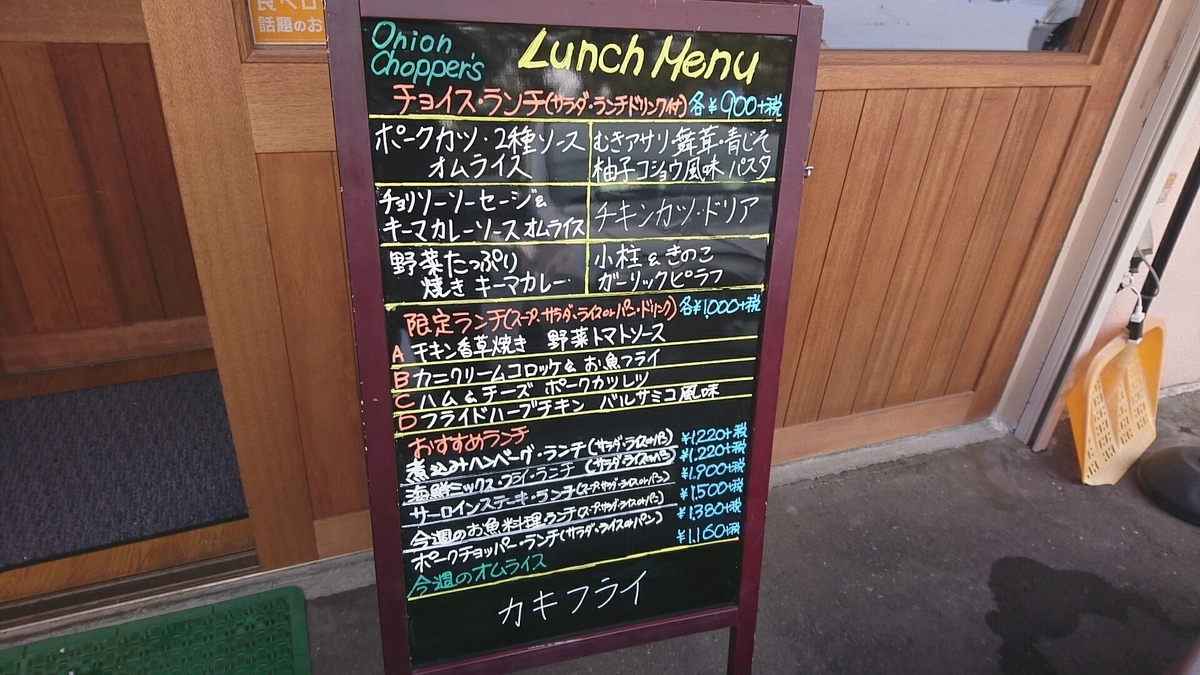 食べロ
話題のお
Onion
Chopper's
Lunch Menu
チョイス・ランチ(サラダ・ランチドリンク付) 各¥900+税
ポークカツ・2種ソース
オムライス
むきアサリ・舞茸・青じそ
柚子コショウ風味 パスタ
チョリソーソーセージ&
キーマカレーソース オムライス
チキンカツ・ドリア
野菜たっぷり
焼き キーマカレー
小柱 & きのこ
ガーリックピラフ
限定ランチ(スープ、サラダ、ライスorパン・ドリンク) 各¥1,000+税
A チキン香草焼き 野菜トマトソース
B カニクリームコロッケ & お魚フライ
C ハム & チーズ ポークカツレツ
D フライドハーブチキン バルサミコ風味
おすすめランチ
煮込みハンバーグ・ランチ (サラダ・ライスorパン) ¥1,220+税
海鮮ミックス・フライ・ランチ (サラダ・ライスorパン) ¥1,220+税
サーロインステーキ・ランチ(スープ・サラダ・ライスorパン) ¥1,900+税
¥1,500+税
今週のお魚料理・ランチ(スープ・サラダ・ライスorパン) ¥1,380+税
ポークチョッパー・ランチ(サラダ・ライスorパン) ¥1,160+税
今週のオムライス
カキフライ